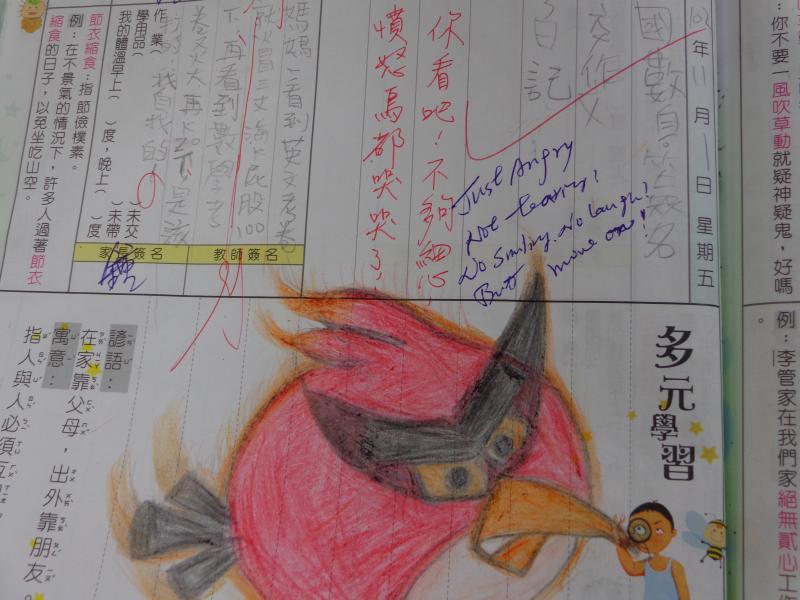 ：你不要一風吹草動就疑神疑鬼，好嗎
例：李管家在我們家絕無貳心工
102年11月1日 星期五
簽名
日記
你看吧！不夠細心，
憤怒鳥都哭哭了！
Just Angry
Not tearing!
No Smiling. No laugh!
But move on!
媽媽一看到英文考卷
就火冒三丈海K屁股100
下，再看到數學考
卷又火大再K
是該
教師簽名
家長簽名
作業（　）未交
學用品（　）未帶
我的體溫早上（　）度，晚上（　）度
節衣縮食：指節儉樸素。
例：在不景氣的情況下，許多人過著節衣
縮食的日子，以免坐吃山空。
多元學習
諺語：
在家靠父母，出外靠朋友
寓意：
指人與人必須互